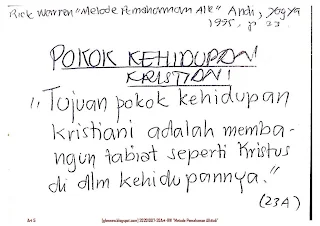 Rick Warren "Metode Pemahaman Alk" Andi, Yogya
1995, p 23
POKOK KEHIDUPAN
KRISTIANI
"Tujuan pokok kehidupan
kristiani adalah memba-
ngun tabiat seperti Kristus
di dlm kehidupannya."
(23A)
Art 5